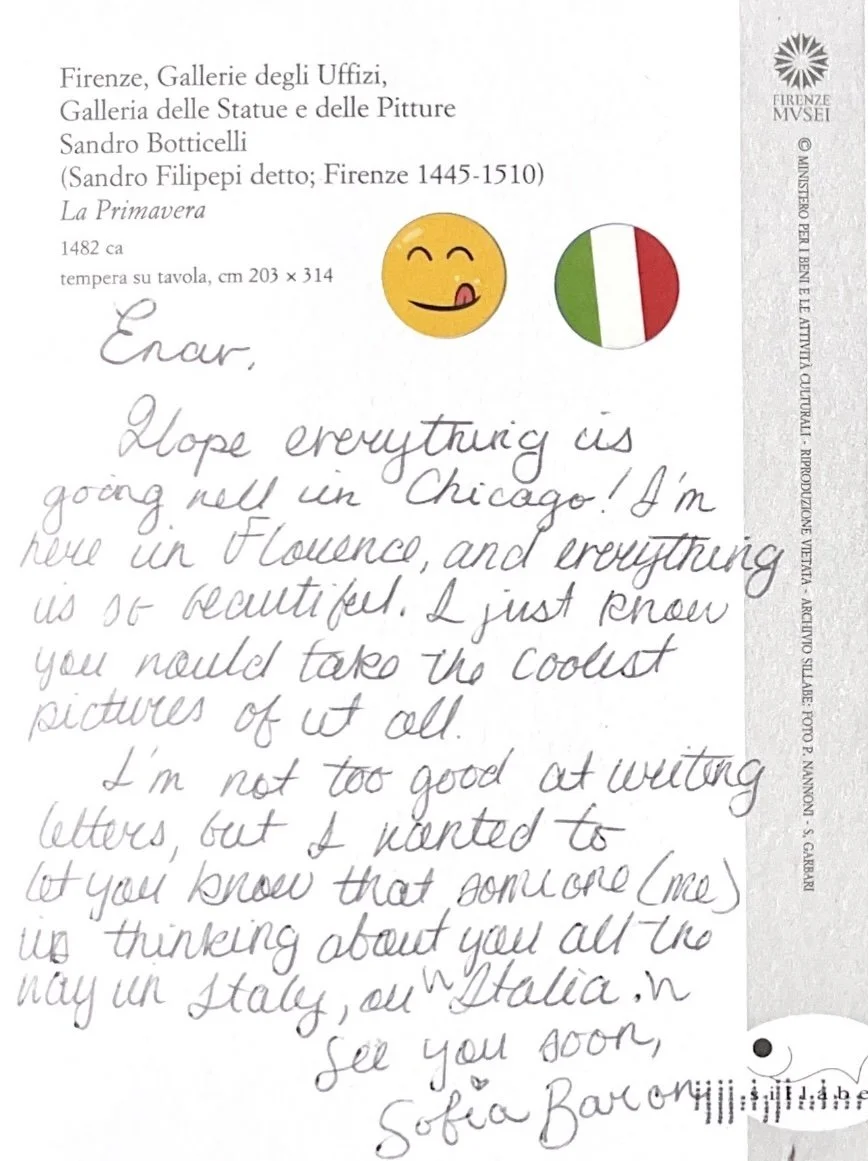 Firenze, Gallerie degli Uffizi,
Galleria delle Statue e delle Pitture
Sandro Botticelli
(Sandro Filipepi detto; Firenze 1445-1510)
La Primavera
1482 ca
tempera su tavola, cm 203 × 314
Enar,
Hope everything is
going well in Chicago! I'm
here in Florence, and everything
is so beautiful. I just know
you would take the coolest
pictures of it all.
I'm not too good at writing
letters, but I wanted to
let you know that someone (me)
is thinking about you all the
way in Italy, or "Italia."
See you soon,
Sofia Baron
FIRENZE
MVSEI
© MINISTERO PER I BENI E LE ATTIVITÀ CULTURALI - RIPRODUZIONE VIETATA - ARCHIVIO SILLABE: FOTO P. NANNONI - S. GARBARI
sillabe